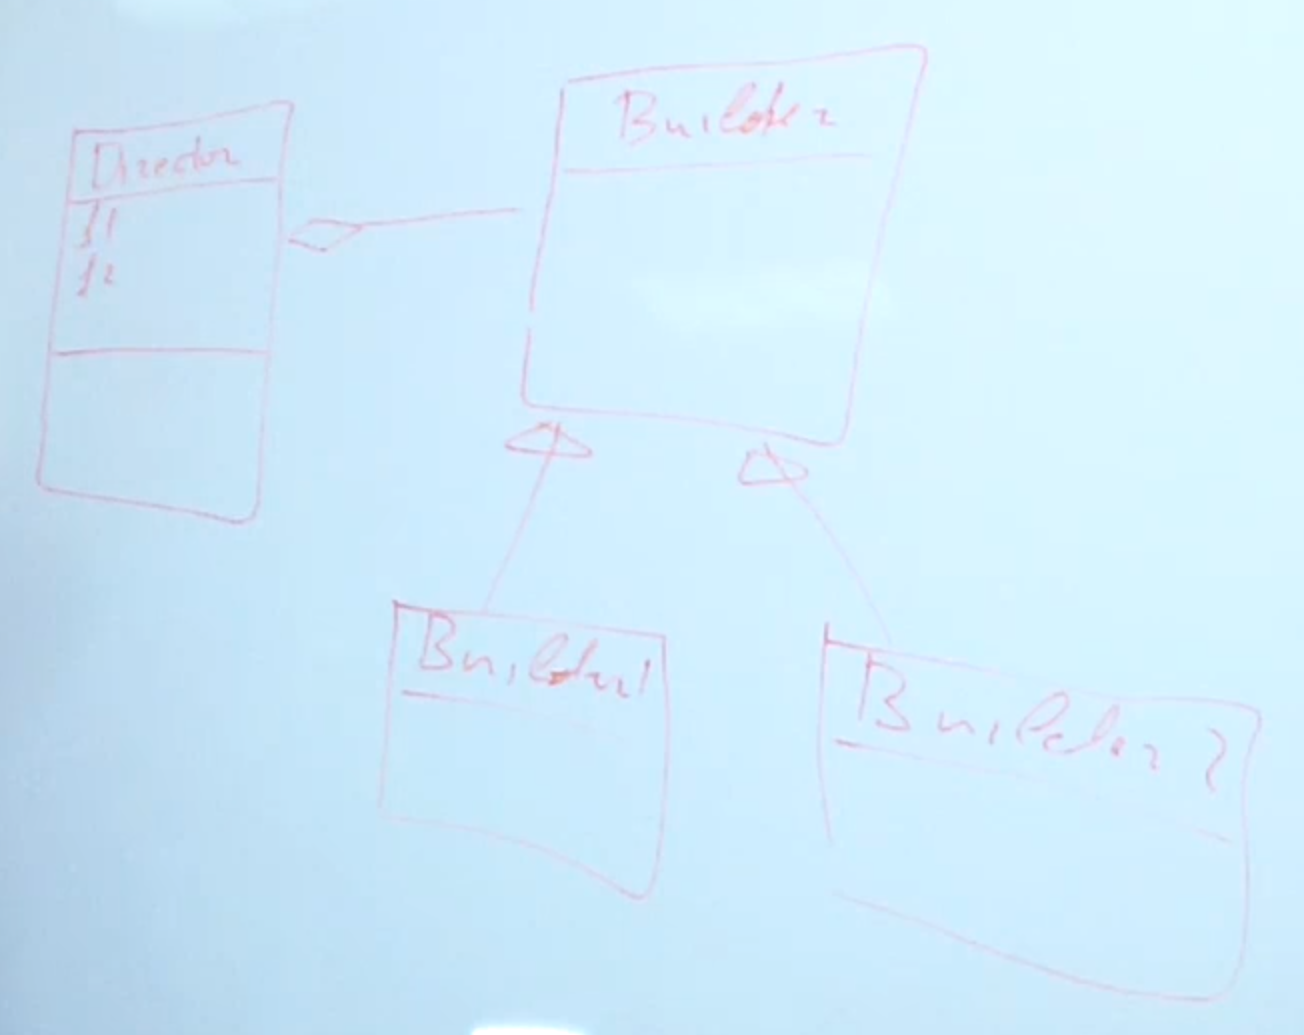 Director
f1
f2
Builder
Builder1
Builder2